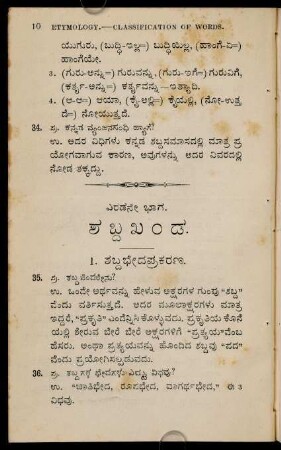 10 ETYMOLOGY.—CLASSIFICATION OF WORDS.
ಯುಗುರು, (ಬುದ್ಧಿ-ಇಲ್ಲ=) ಬುದ್ಧಿಯಿಲ್ಲ, (ಹಾಂಗೆ-ಏ=)
ಹಾಂಗೆಯೇ.
3. (ಗುರು-ಅನ್ನು=) ಗುರುವನ್ನು, (ಗುರು-ಇಗೆ=) ಗುರುವಿಗೆ,
(ಕರ್ತೃ-ಅನ್ನು=) ಕರ್ತೃವನ್ನು—ಇತ್ಯಾದಿ.
4. (ಆ-ಆ=) ಆಯಾ, (ಕೈ-ಅಲ್ಲಿ=) ಕೈಯಲ್ಲಿ, (ನೋ-ಉತ್ತ
ದೆ=) ನೋಯುತ್ತದೆ.
34. ಪ್ರ. ಕನ್ನಡ ವ್ಯಂಜನಸಂಧಿ ಹ್ಯಾಗೆ?
ಉ. ಅದರ ವಿಧಿಗಳು ಕನ್ನಡ ಶಬ್ದಸಮಾಸದಲ್ಲಿ ಮಾತ್ರ ಪ್ರ
ಯೋಗವಾಗುವ ಕಾರಣ, ಅವುಗಳನ್ನು ಆದರ ವಿವರದಲ್ಲಿ
ನೋಡ ತಕ್ಕದ್ದು.
ಎರಡನೇ ಭಾಗ.
ಶಬ್ದಖಂಡ.
1. ಶಬ್ದಭೇದಪ್ರಕರಣ.
35. ಪ್ರ. ಶಬ್ದವೆಂದರೇನು?
ಉ. ಒಂದೇ ಅರ್ಥವನ್ನು ಹೇಳುವ ಅಕ್ಷರಗಳ ಗುಂಪು “ಶಬ್ದ”
ವೆಂದು ವರ್ತಿಸುತ್ತದೆ. ಅದರ ಮೂಲಾಕ್ಷರಗಳು ಮಾತ್ರ
ಇದ್ದರೆ, “ಪ್ರಕೃತಿ” ಎಂದೆನ್ನಿಸಿಕೊಳ್ಳುವದು. ಪ್ರಕೃತಿಯ ಕೊನೆ
ಯಲ್ಲಿ ಶೇರುವ ಬೇರೆ ಬೇರೆ ಅಕ್ಷರಗಳಿಗೆ “ಪ್ರತ್ಯಯ”ವೆಂಬ
ಹೆಸರು. ಅಂಥಾ ಪ್ರತ್ಯಯವನ್ನು ಹೊಂದಿದ ಶಬ್ದವು “ಪದ”
ವೆಂದು ಪ್ರಯೋಗಿಸಲ್ಪಡುವದು.
36. ಪ್ರ. ಶಬ್ದಗಳ ಭೇದಗಳು ಎಷ್ಟು ವಿಧವು?
ಉ. “ಜಾತಿಭೇದ, ರೂಪಭೇದ, ವಾಗರ್ಥಭೇದ,” ಈ 3
ವಿಧವು.